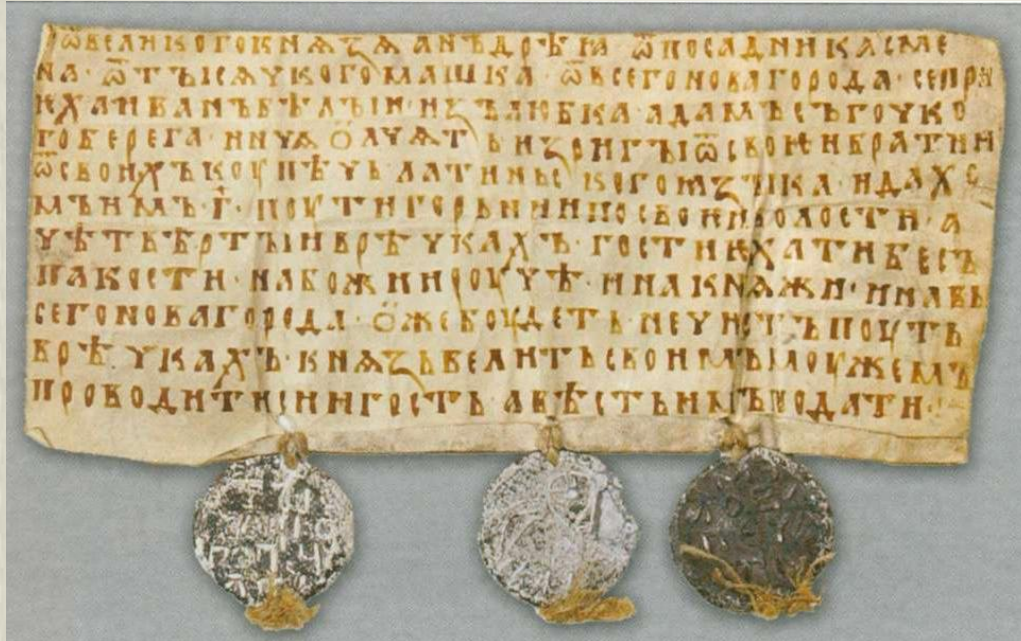 ѿ великого кнѧзѧ анъдрѣꙗ ѿ посадника сме
на · ѿ тысѧчкого машка · ѿ всего новагорода · се при
ѥха иванъ бѣлыи · изъ любка · адамъ съ гоцко
го берега · инчѧ ѻлчѧть из ригы ѿ своѥи братии
ѿ своихъ коупѣць латиньского ꙗзыка · и дахо
мъ имъ · г҃ · поути горьнии по своѥи волости · а
чѣтвьртыи в рѣчкахъ · гости ѥхати бесъ
пакости · на божии роуцѣ · и на кнѧжи · и на вь
сего новагорода · ѻже боудеть не чистъ поуть
в рѣчкахъ · кнѧзь велить своимъ моужемъ
проводити сии гость · а вѣсть имъ подати ·